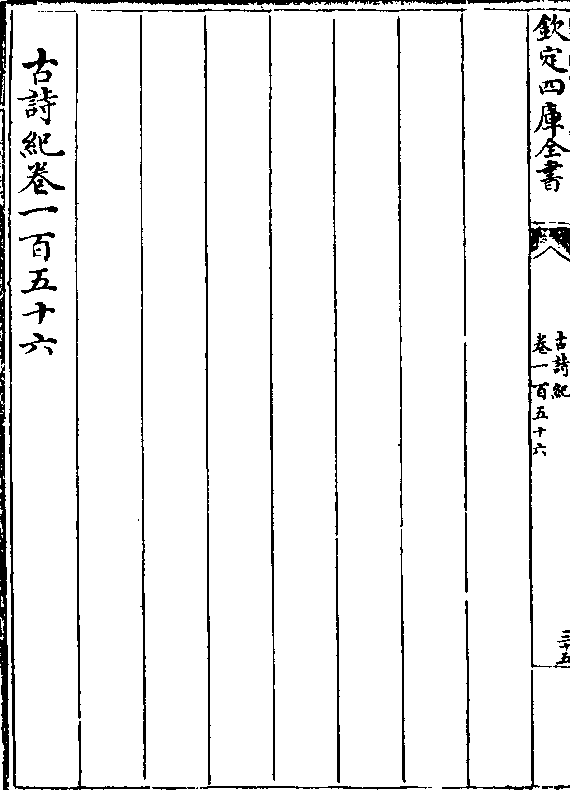 欽定四庫全書
古詩紀
卷一百五十六
三十五
古詩紀卷一百五十六